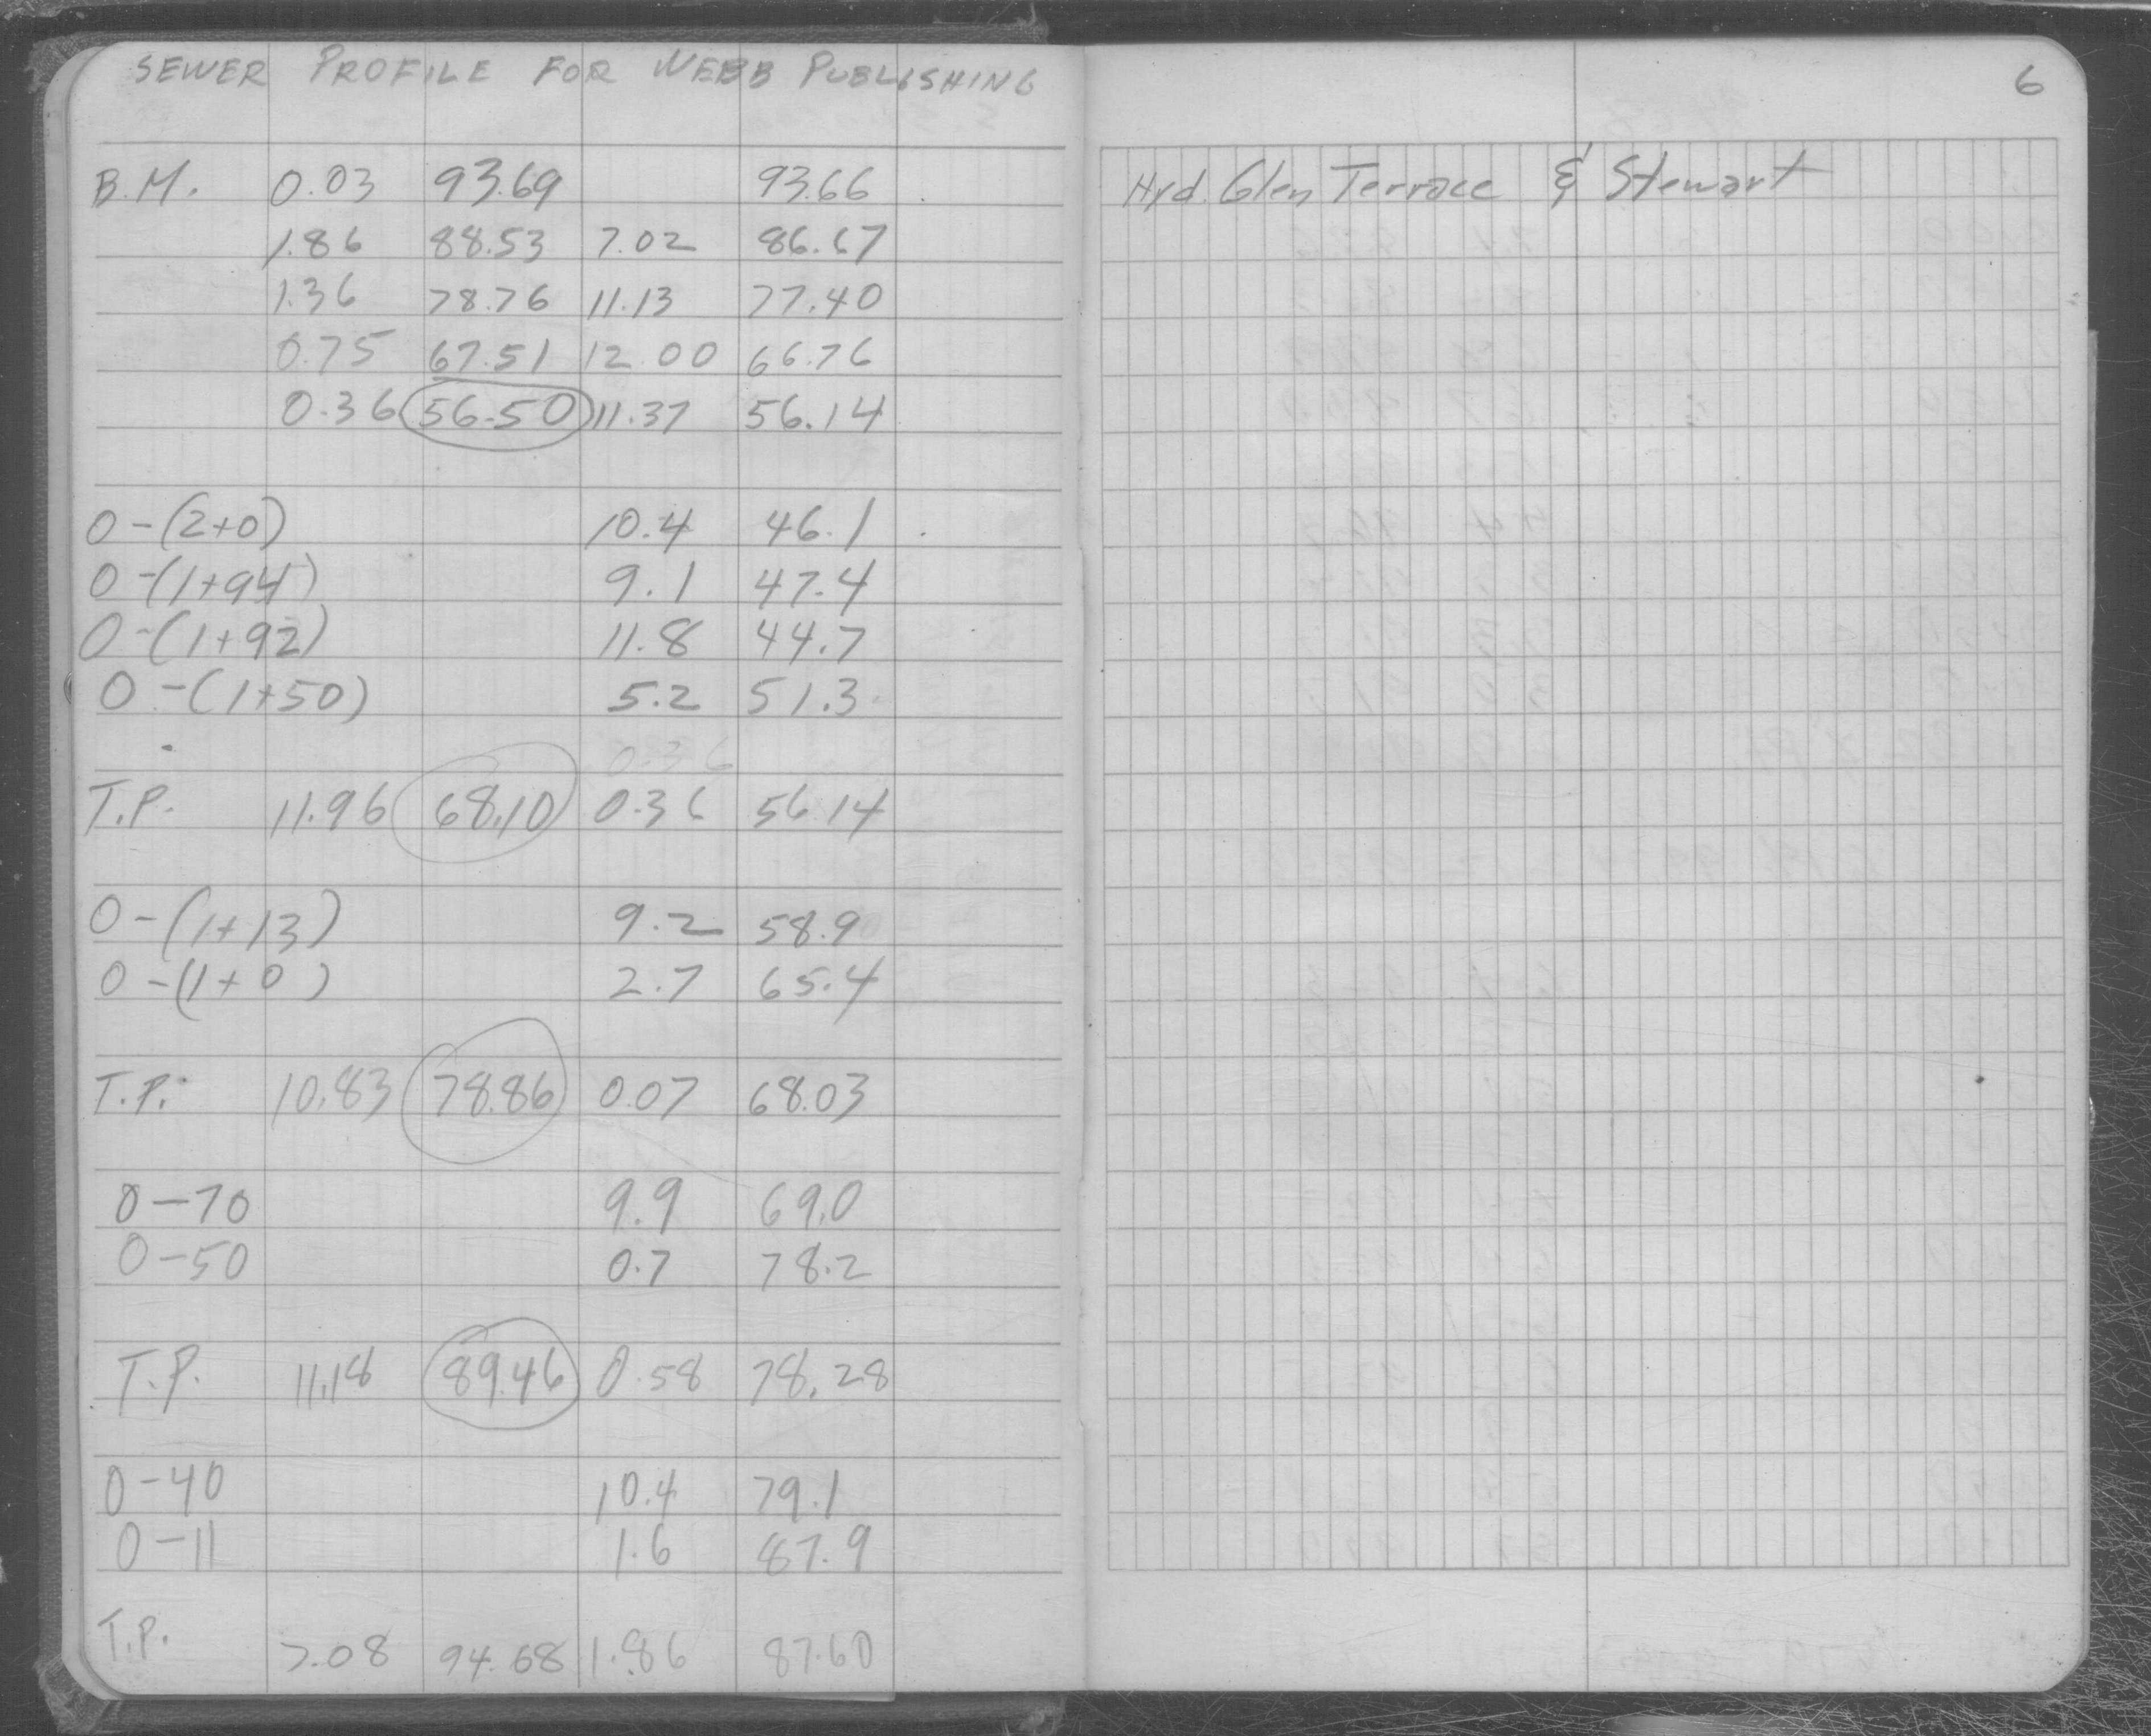 SEWER PROFILE FOR WEBB PUBLISHING
6
B.M. 0.03 93.69 93.66 Hyd. Glen Terrace & Stewart
1.86 88.53 7.02 86.67
1.36 78.76 11.13 77.40
0.75 67.51 12.00 66.76
0.36 56.50 11.37 56.14
0-(2+0) 10.4 46.1
0-(1+94) 9.1 47.4
0-(1+92) 11.8 44.7
0-(1+50) 5.2 51.3
0.36
T.P. 11.96 68.10 0.36 56.14
0-(1+13) 9.2 58.9
0-(1+0) 2.7 65.4
T.P. 10.83 78.86 0.07 68.03
0-70 9.9 69.0
0-50 0.7 78.2
T.P. 11.18 89.46 0.58 78.28
0-40 10.4 79.1
0-11 1.6 87.9
T.P. 7.08 94.68 1.86 87.60